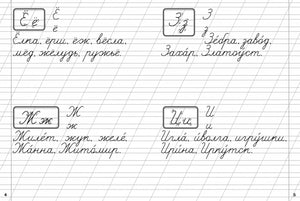 Ё ё
Ё
ё
Ёлка, ёрш, ёж, вёсла,
мёд, желудь, ружьё.
З з
З
з
Зебра, завод,
Захар, Златоуст.
Ж ж
Ж
ж
Жилет, жук, желе.
Жанна, Житомир.
И и
И
и
Игла, иволга, игрушки,
Ирина, Ирпутск.
4
5